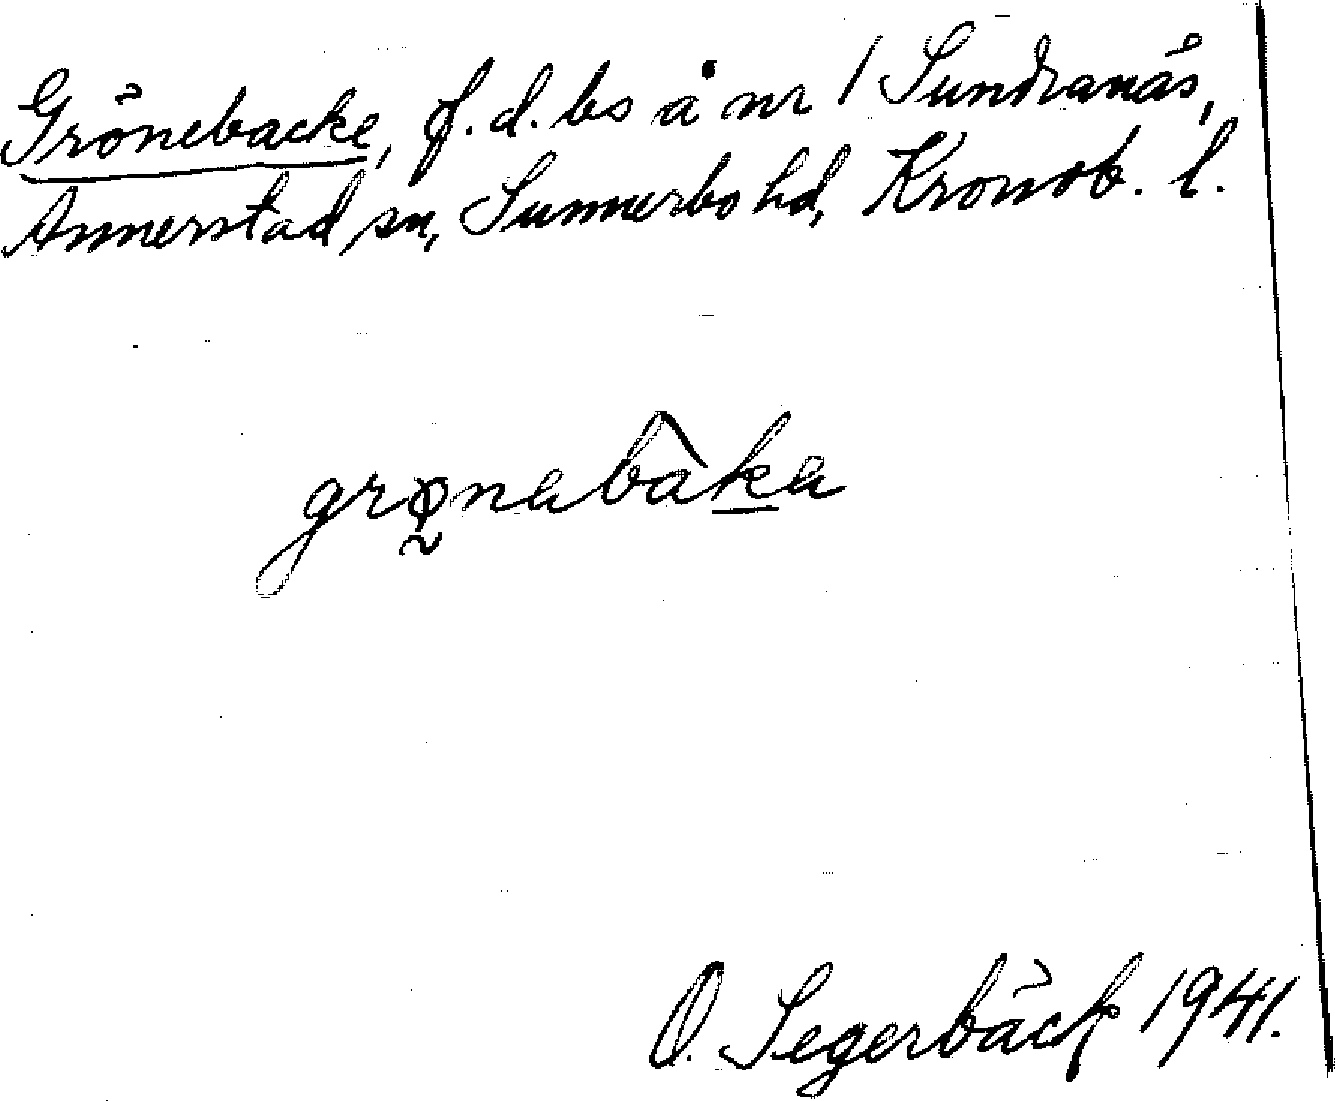 Grönebacke, f.d. bs å nr 1 Sundranäs,
Annerstad sn, Sunnerbo hd, Kronob. l.
grø̰nabàka
O. Segerbäck 1941.